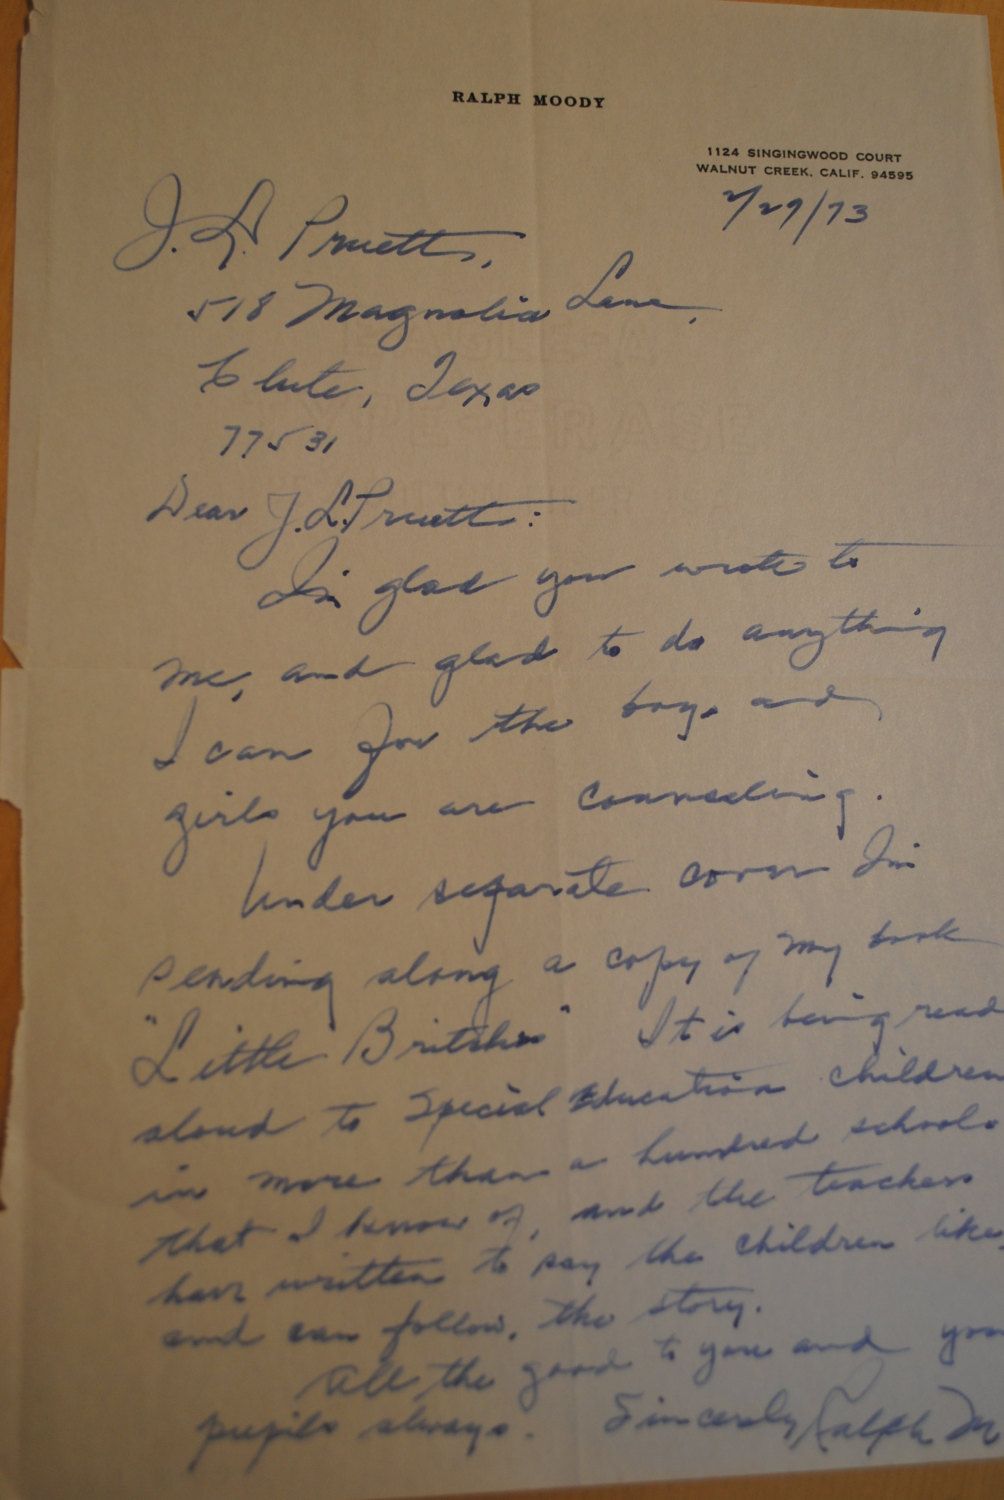 RALPH MOODY
1124 SINGINGWOOD COURT
WALNUT CREEK, CALIF. 94595
/73
J. L. Pruett,
518 Magnolia Lane,
Clute, Texas
77531
Dear J. L. Pruett:
I'm glad you wrote to
me, and glad to do anything
I can for the boys and
girls you are counseling.
Under separate cover I'm
sending along a copy of my book
"Little Britches" It is being read
aloud to Special Education children
in more than a hundred schools
that I know of, and the teachers
have written to say the children like,
and can follow, the story.
All the good to you and you
pupils always. Sincerely Ralph M